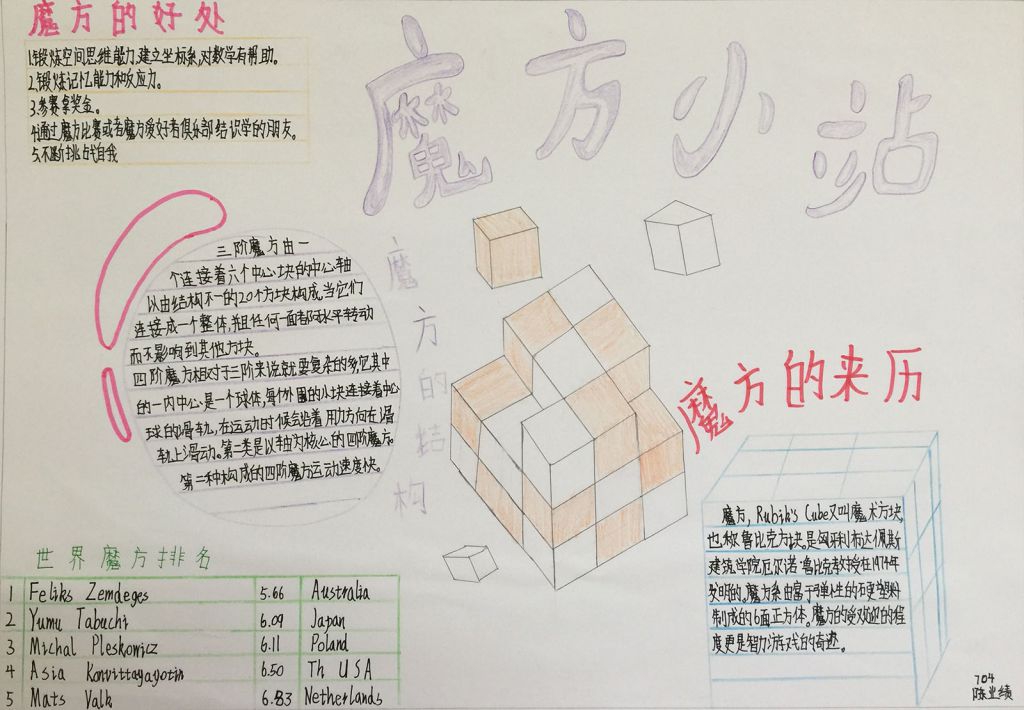 魔方的好处
1.锻炼空间思维能力,建立坐标系,对数学有帮助。
2.锻炼记忆能力和反应力。
3.参赛拿奖金。
4.通过魔方比赛或者魔方爱好者俱乐部结识学的朋友。
5.不断挑战自我
魔方小站
三阶魔方由一
个连接着六个中心块的中心轴
以由结构不一的20个方块构成,当它们
连接成一个整体,并且任何一面都可水平转动
而不影响到其他方块。
四阶魔方相对于三阶来说就要复杂的多,它其中
的一内中心是一个球体,每个外围的小块连接着中心
球的滑轨,在运动时候会沿着用力方向在滑
轨上滑动。第二类是以轴为核心的四阶魔方。
第二种构成的四阶魔方运动速度快。
魔方的结构
魔方的来历
魔方,Rubik's Cube又叫魔术方块,
也称鲁比克方块,是匈牙利布达佩斯
建筑学院厄尔诺·鲁比克教授在1974年
发明的。魔方系由富于弹性的硬塑料
制成的6面正方体。魔方的受欢迎的程
度更是智力游戏的奇迹。
世界魔方排名
1 Feliks Zemdeges 5.66 Australia
2 Yumu Tabuchi 6.09 Japan
3 Michal Pleskowicz 6.11 Poland
4 Asia Konvittayayotin 6.50 Th USA
5 Mats Valk 6.83 Netherlands
704
陈业绩